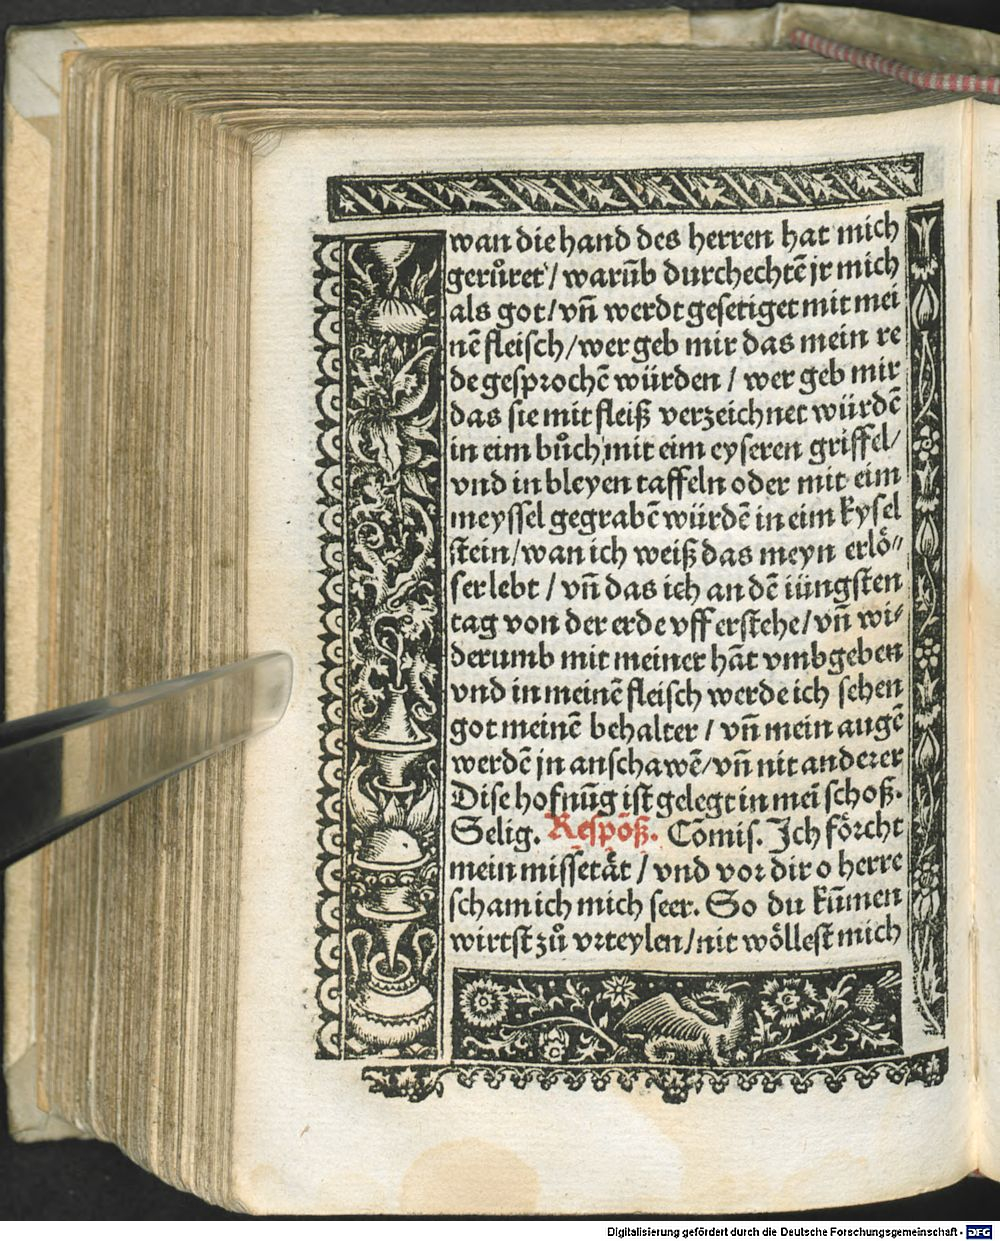 wan die hand des herren hat mich
gerůret / warūb durchechtē jr mich
als got / vn̄ werdt gesetiget mit mei
nē fleisch / wer geb mir das mein re
de gesprochē würden / wer geb mir
das sie mit fleiß verzeichnet würdē
in eim bůch mit eim eyseren griffel /
vnd in bleyen taffeln oder mit eim
meyssel gegrabē würdē in eim kysel
stein / wan ich weiß das meyn erlö⸗
ser lebt / vn̄ das ich an dē iüngsten
tag von der erde vff erstehe / vn̄ wi⸗
derumb mit meiner hāt vmbgeben
vnd in meinē fleisch werde ich sehen
got meinē behalter / vn̄ mein augē
werdē jn anschawē / vn̄ nit anderer
Dise hofnūg ist gelegt in mei schoß.
Selig. Respōß. Cōmis. Ich förcht
mein missetät / vnd vor dir o herre
scham ich mich seer. So du kūmen
wirtst zů vrteylen / nit wöllest mich
Digitalisierung gefördert durch die Deutsche Forschungsgemeinschaft - DFG